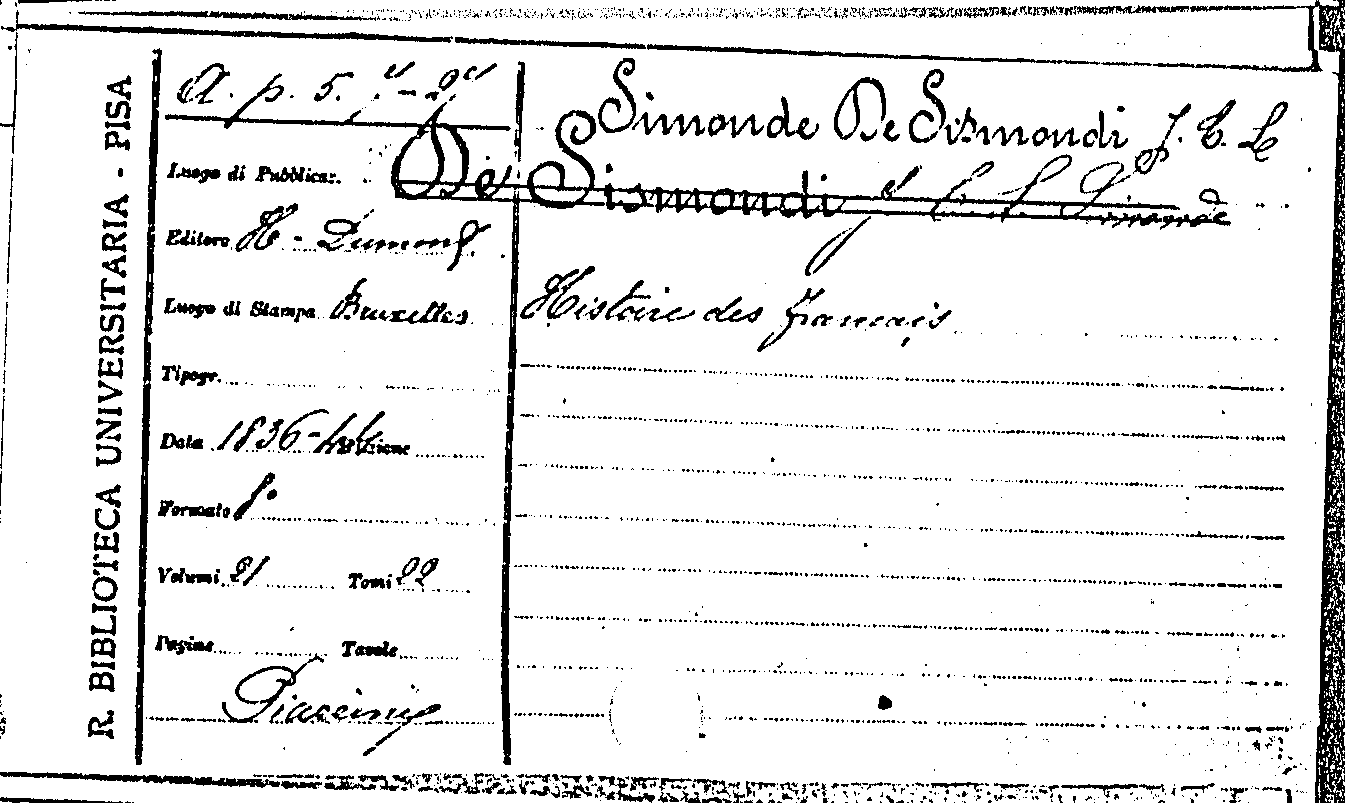 R. BIBLIOTECA UNIVERSITARIA - PISA
A. p. 5.
Simonde De Sismondi J. C. L
De Sismondi J C. L. Simonde
Luogo di Pubblicaz.
Editore H - Dumont
Luogo di Stampa Bruxelles
Histoire des Français
Tipogr.
Data 1836-44
Formato 8°
Volumi 21 Tomi 22
Pagine Tavole